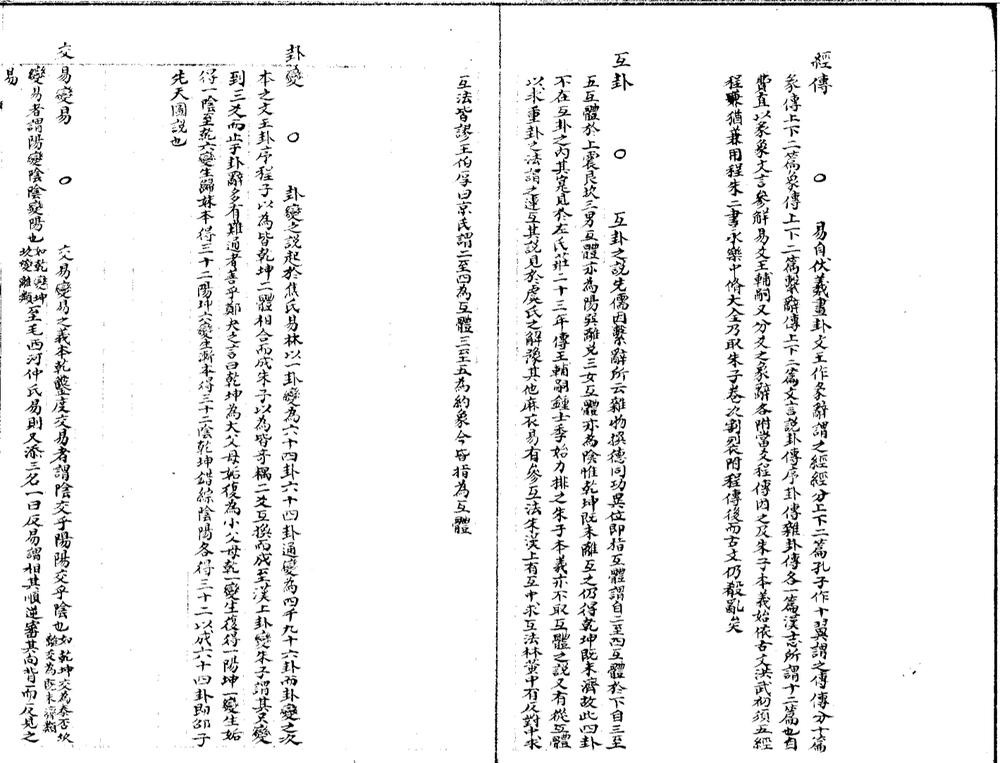 經傳　○　易自伏羲畫卦文王作彖辭謂之經經分上下二篇孔子作十翼謂之傳傳分十篇
彖傳上下二篇象傳上下二篇繫辭傳上下二篇文言說卦傳序卦傳雜卦傳各一篇漢志所謂十二篇也自
費直以彖象文言參解易爻王輔嗣又分爻之象辭各附當爻程傳因之及朱子本義始依古文洪武初頒五經
程猶兼用程朱二書永樂中脩大全乃取朱子卷次割裂附程傳後而古文仍殽亂矣
互卦　○　互卦之說先儒因繫辭所云雜物撰德同功異位即指互體謂自二至四互體於下自三至
五互體於上震艮坎三男互體亦為陽巽離兌三女互體亦為陰惟乾坤既未離互之仍得乾坤既未濟故此四卦
不在互卦之內其寔見於左氏莊二十三年傳王輔嗣鍾士季始力排之朱子本義亦不取互體之說又有從互體
以求重卦之法謂之連互其說見於虞氏之解豫其他麻衣易有參互法朱漢上有互中求互法林黃中有反對中求
互法皆謬王伯厚曰京氏謂二至四為互體三至五為約象今皆指為互體
卦變　○　卦變之說起於焦氏易林以一卦變為六十四卦六十四卦通變為四千九十六卦而卦變之次
本之文王卦序程子以為皆乾坤二體相合而成朱子以為皆奇耦二爻互換而成至漢上卦變朱子謂其只變
到三爻而止于卦辭多有難通者善乎鄭夬之言曰乾坤為大父母姤復為小父母乾一變生復得一陽坤一變生姤
得一陰至乾六變生歸妹本得三十二陽坤六變生漸本得三十二陰乾坤錯綜陰陽各得三十二以成六十四卦即邵子
先天圖說也
交易變易　○　交易變易之義本乾鑿度交易者謂陰交乎陽陽交乎陰也如乾坤交為泰否坎離交為既未濟類
變易者謂陽變陰陰變陽也如乾變坤坎變離類至毛西河仲氏易則又添三名一曰反易謂相其順逆審其向背而反見之
易